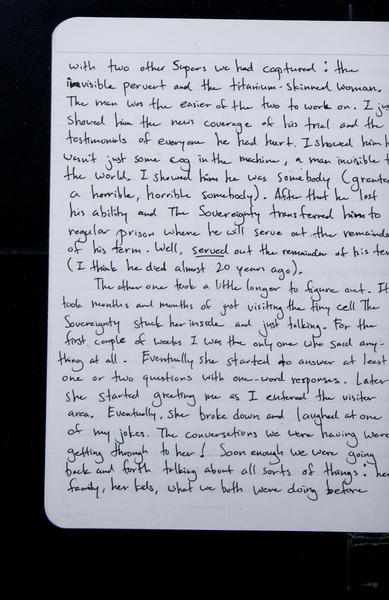 with two other Supers we had captured: the
invisible pervert and the titanium-skinned woman.
The man was the easier of the two to work on. I jus
showed him the news coverage of his trial and the
testimonials of everyone he had hurt. I showed him h
wasn't just some cog in the machine, a man invisible t
the world. I showed him he was somebody (granted
a horrible, horrible somebody). After that he lost
his ability and The Sovereignty transferred him to
regular prison where he will serve out the remainde
of his term. Well, served out the remainder of his ter
(I think he died almost 20 years ago).
The other one took a little longer to figure out. It
took months and months of just visiting the tiny cell The
Sovereignty stuck her inside and just talking. For the
first couple of weeks I was the only one who said any-
thing at all. Eventually she started to answer at least
one or two questions with one-word responses. Later
she started greeting me as I entered the visitor
area. Eventually, she broke down and laughed at one
of my jokes. The conversations we were having were
getting through to her! Soon enough we were going
back and forth talking about all sorts of things: her
family, her kids, what we both were doing before